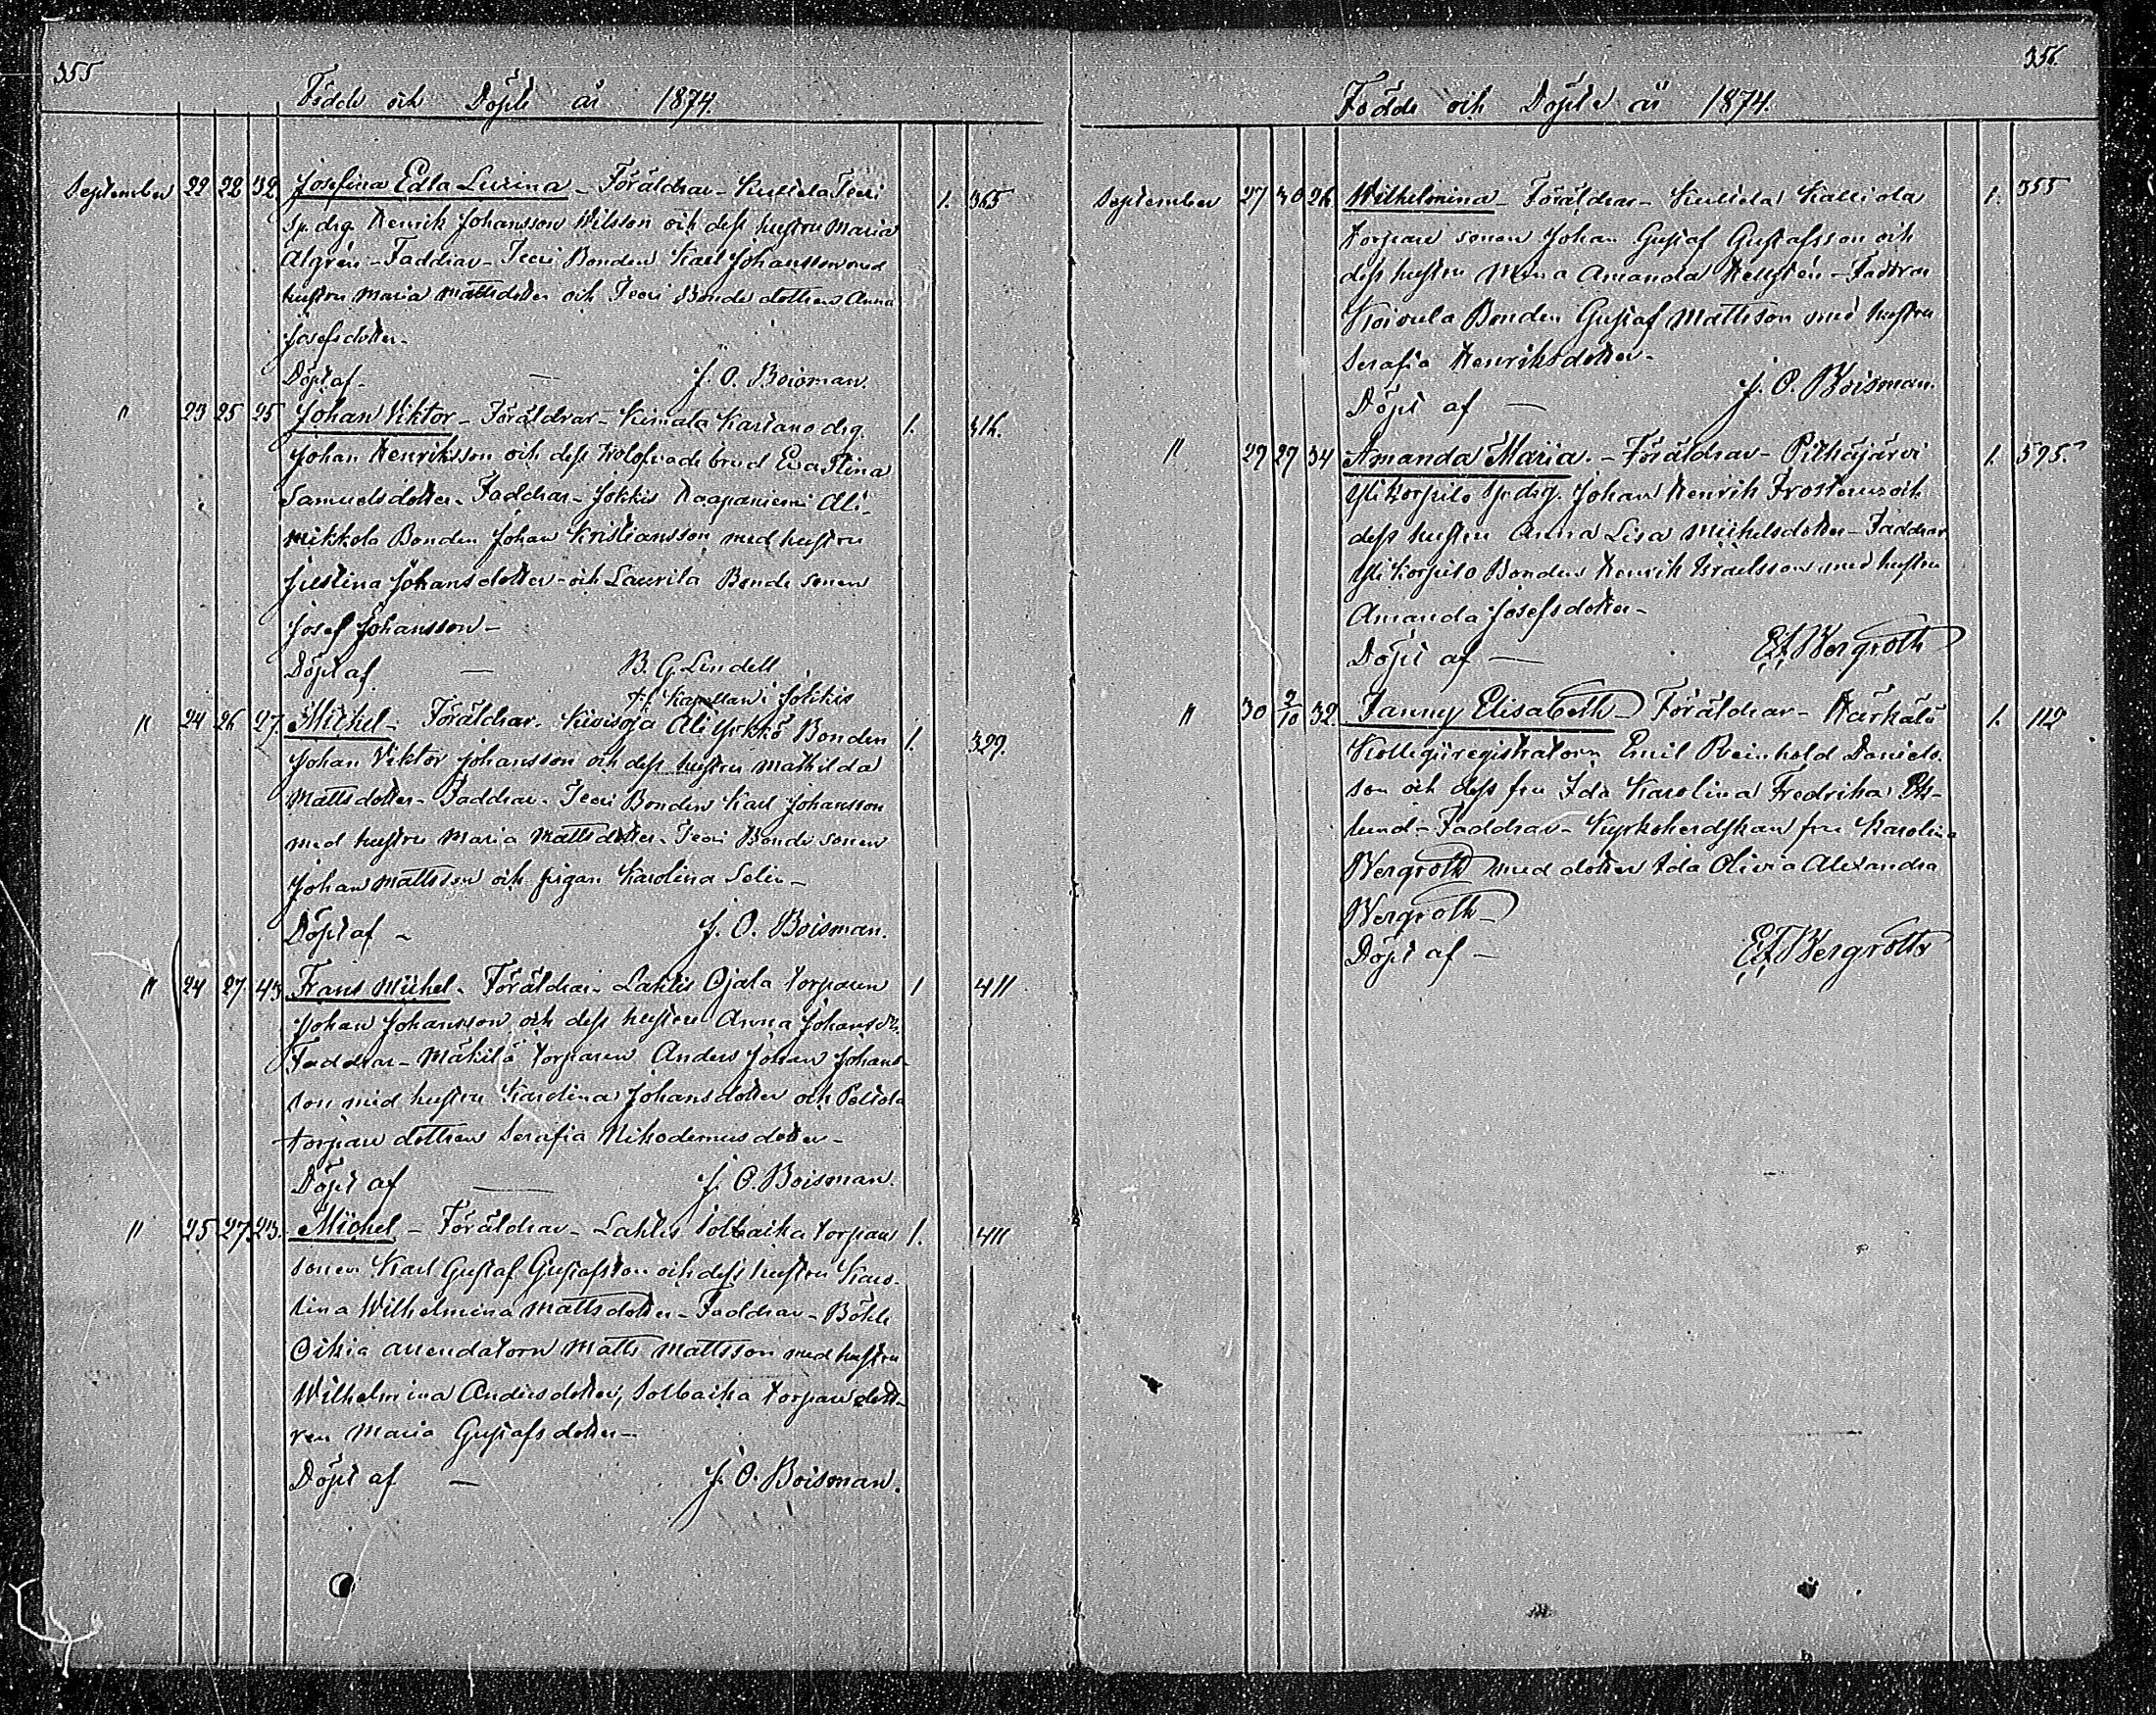 355
Födde och Döpte år 1874.
September 22 28 32. Josefina Edla Lusina - Föräldrar - Teuri 1. 365
drg. Henrik Johansson Wilsson och dess hustru Maria
Algrén - Faddrar - Teuri Bonden Karl Johansson med
hustru Maria Mattsdotter och Teuri Bonde dottren Anna
Josefsdotter -
Döpt af - J. O. Boisman.
" 23 25 25 Johan Viktor - Föräldrar - Kartano drg. 1. 316.
Johan Henriksson och dess trolofvade brud Eva Stina
Samuelsdotter - Faddrar - Jokkis Haapaniemi Ali-
mikkola Bonden Johan Kristiansson med hustru
Justina Johansdotter - och Laurila Bonde sonen
Josef Johansson -
Döpt af - B. G. Lindell
t.f. Kapellan i Jokkis
" 24 26 27. Michel - Föräldrar - Kivisoja Ali Yrkkö Bonden 1. 329.
Johan Viktor Johansson och dess hustru Mathilda
Mattsdotter - Faddrar - Teuri Bonden Karl Johansson
med hustru Maria Mattsdotter - Teuri Bonde sonen
Johan Mattsson och pigan Karolina Selin -
Döpt af - J. O. Boisman.
" 24 27 43 Frans Michel - Föräldrar - Lahtis Ojala torparen 1 411
Johan Johansson och dess hustru Anna Johansdr.
Faddrar - Mäkilä torparen Anders Johan Johans-
son med hustru Karolina Johansdotter och Peltola
torpare dottren Serafia Nikodemusdotter -
Döpt af - J. O. Boisman.
" 25 27 23. Michel - Föräldrar - Lahtis Solbacka torpare 1. 411
sonen Karl Gustaf Gustafsson och dess hustru Karo-
lina Wilhelmina Mattsdotter - Faddrar - Böhle
Oikia arrendatorn Matts Mattsson med hustru
Wilhelmina Andersdotter, Solbacka torpare dott-
ren Maria Gustafsdotter -
Döpt af - J. O. Boisman.
356.
Födde och Döpte år 1874.
September 27 30 26. Wilhelmina - Föräldrar - Kalliola 1. 355
torpare sonen Johan Gustaf Gustafsson och
dess hustru Mina Amanda Hellstén - Faddrar
Koivula Bonden Gustaf Mattsson med hustru
Serafia Henriksdotter -
Döpt af - J. O. Boisman.
" 29 29 34 Amanda Maria. - Föräldrar - Pithäjärvi 1. 595.
Ylikorpilo drg. Johan Henrik Frosterus och
dess hustru Anna Lisa Michelsdotter - Faddrar
Ylikorpilo Bonden Henrik Israelsson med hustru
Amanda Josefsdotter -
Döpt af - E F Bergroth
" 30 3/10 32. Fanny Elisabeth - Föräldrar - Härkälä 1. 112
Kollegiiregistratorn Emil Reinhold Daniels-
son och dess fru Ida Karolina Fredrika Ek-
lund - Faddrar - Kyrkoherdskan fru Karolina
Bergroth med dotter Ida Olivia Alexandra
Bergroth -
Döpt af - E F Bergroth